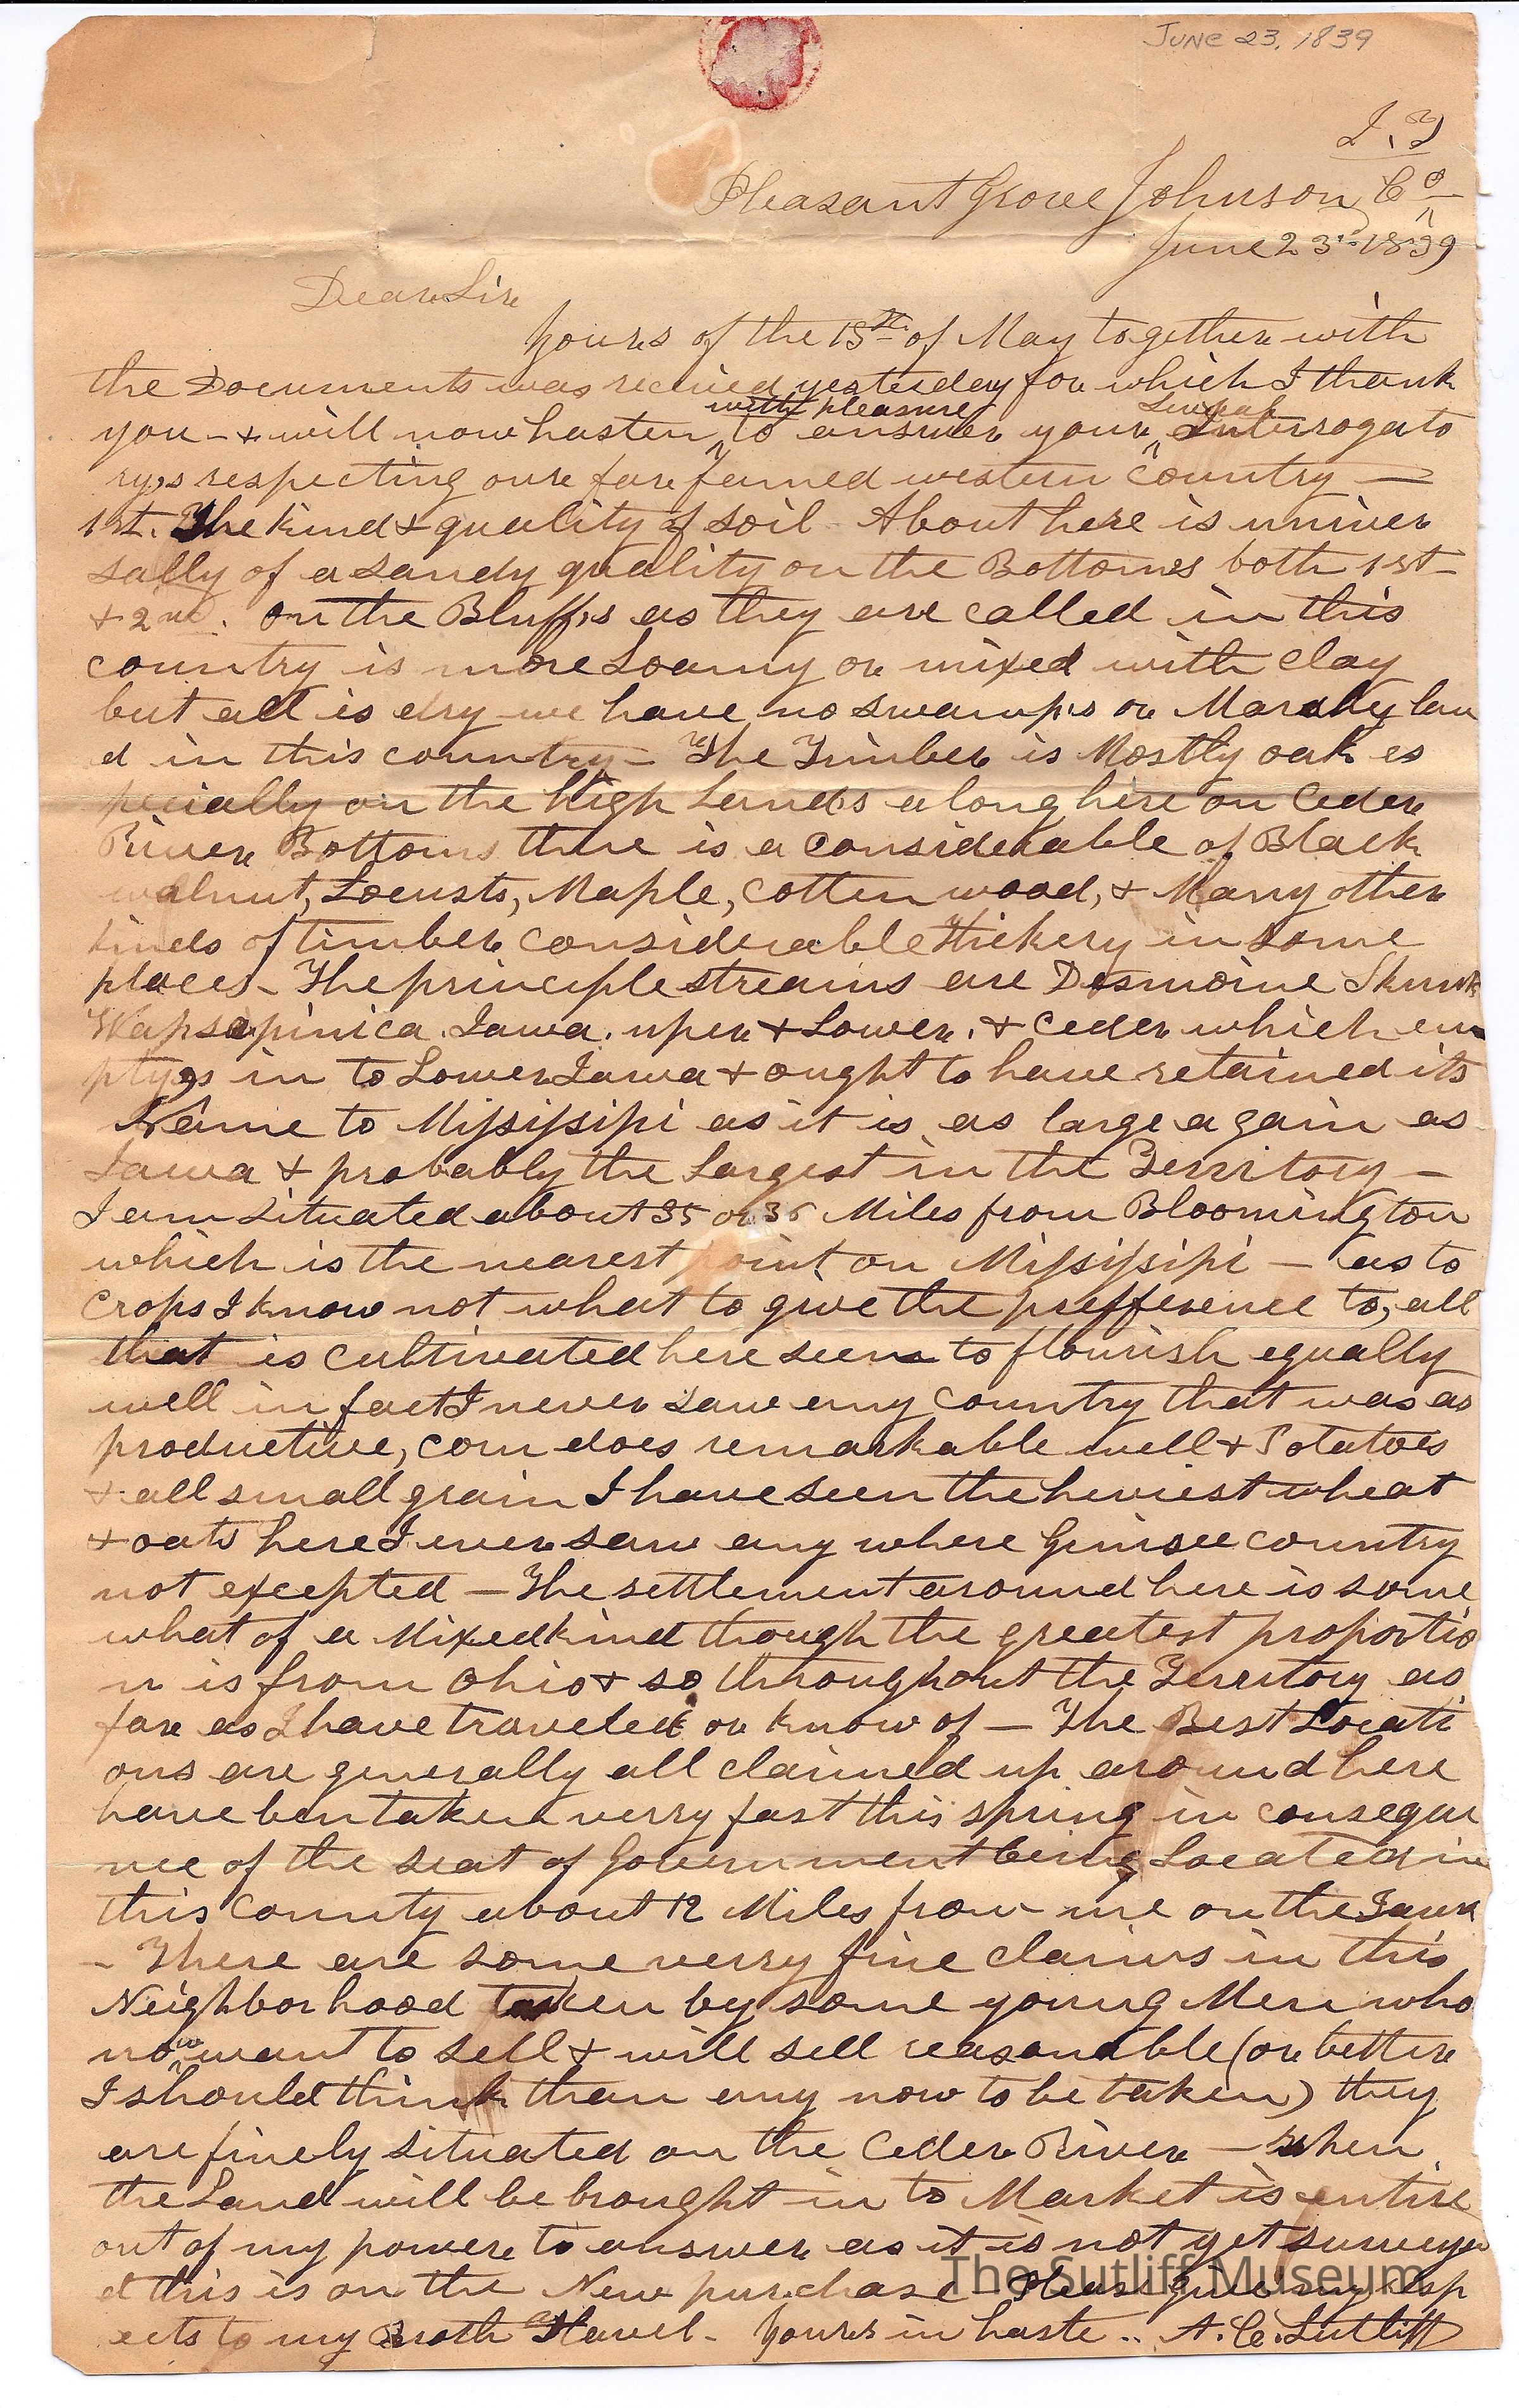 JUNE 23, 1839
I. T
Pleasant Grove Johnson Co
June 23rd 1839
Dear Sir
yours of the 15th of May together with
the Documents was recieved yesterday for which I thank
with pleasure several
you - & will now hasten to answer your Interrogato
ry,s respecting oure fare famed western Country -
1st. The kind & quality of soil About here is univer
sally of a sandy quality on the Bottoms both 1st
& 2nd. on the Bluff,s as they are called in this
country is more Loamy or mixed with clay
but all is dry we have no swamp,s or Marshy lan
d in this country - The Timber is Mostly oak es
pecially on the high Lands along here on Ceder
River Bottoms there is a considerable of Black
walnut, Locusts, Maple, Cotten wood, & Many other
kinds of timber considerable Hickery in some
places - The principle streams are Desmoine Skunk
Wapsapinica. Iawa. uper & Lower. & Ceder which em
ptyes in to Lower Iawa & ought to have retained its
Name to Missisippi as it is as large again as
Iawa & probably the Largest in the Territory -
I am situated about 35 or 36 Miles from Bloomington
which is the nearest point on Missisippi - as to
Crops I know not what to give the prefference to, all
that is cultivated here seem to flourish equally
well in fact I never saw any country that was as
productive, corn does remarkable well & Potatoes
& all small grain I have seen the heviest wheat
& oats here I ever saw any where Ginisee country
not excepted - The settlement around here is some
what of a Mixed kind though the greatest proportio
n is from Ohio & so throughout the Territory as
fare as I have traveled or know of - The Best Locati
ons are generally all claimed up around here
have ben taken verry fast this spring in consequ
nce of the seat of Government being Located in
this County about 12 Miles from me on the Iawa
- There are some verry fine claims in this
Neighborhood taken by some young Men who
now want to sell & will sell reasonable (or bettere
I should think than any now to be taken) they
are finely situated on the Ceder River - when
the Land will be brought in to Market is entire
out of my powere to answer as it is not yet surveye
d this is on the New purchase Please give my resp
ects to my Broth Havel - yours in haste .. A. C. Sutliff
The Sutliff Museum